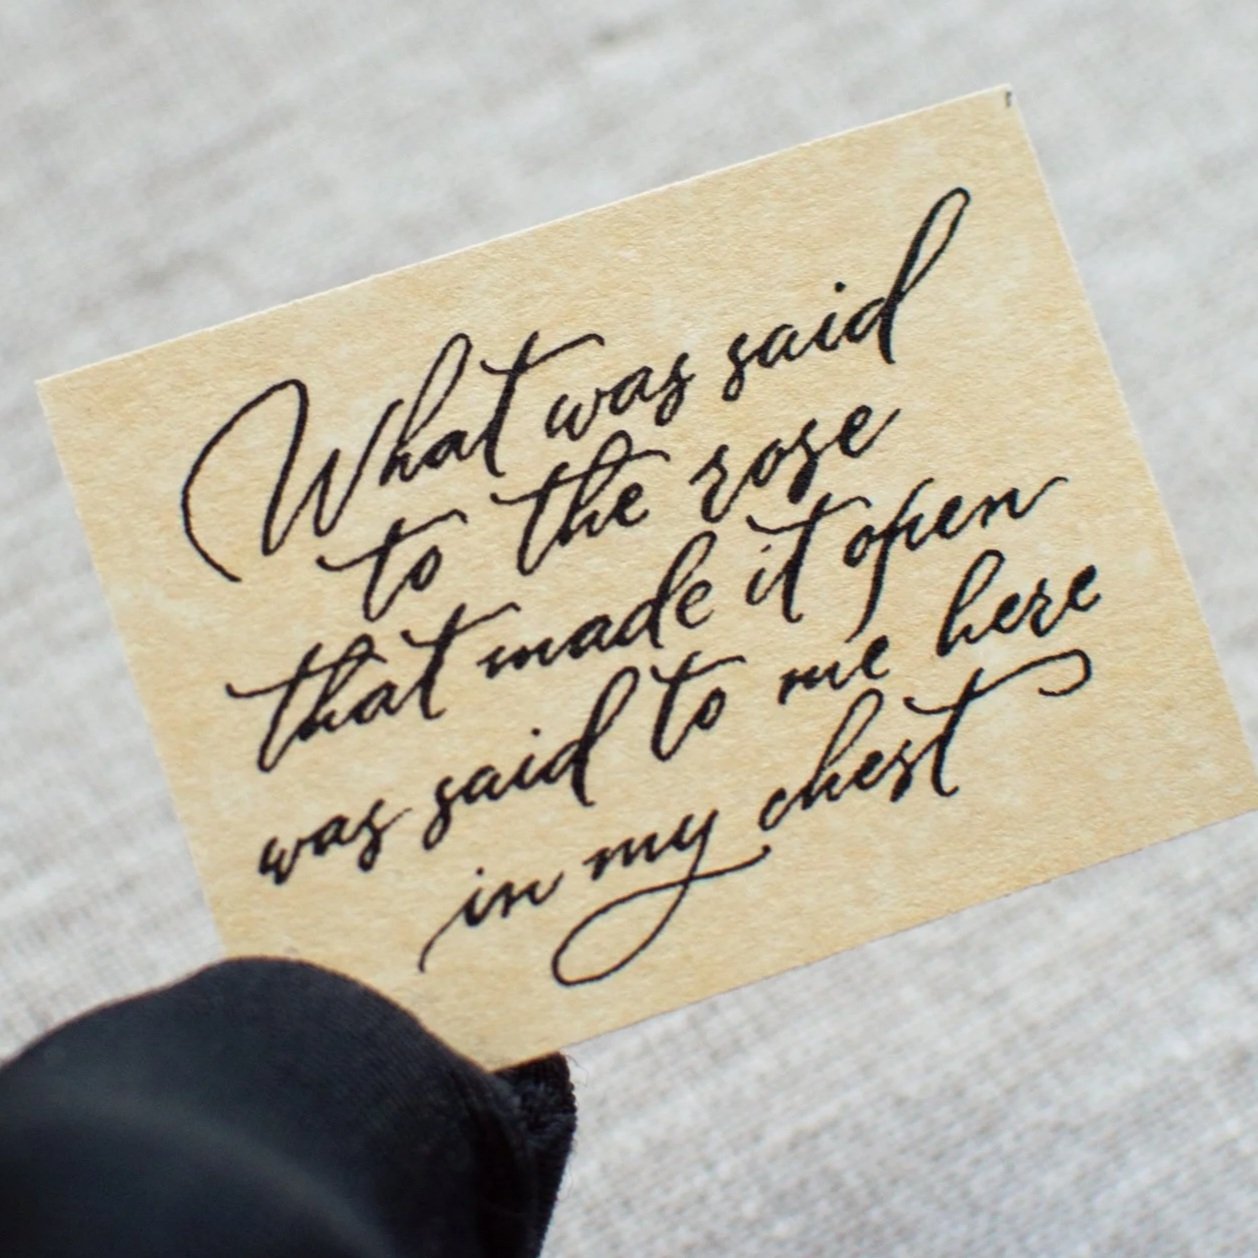 What was said
to the rose
that made it open
was said to me here
in my chest